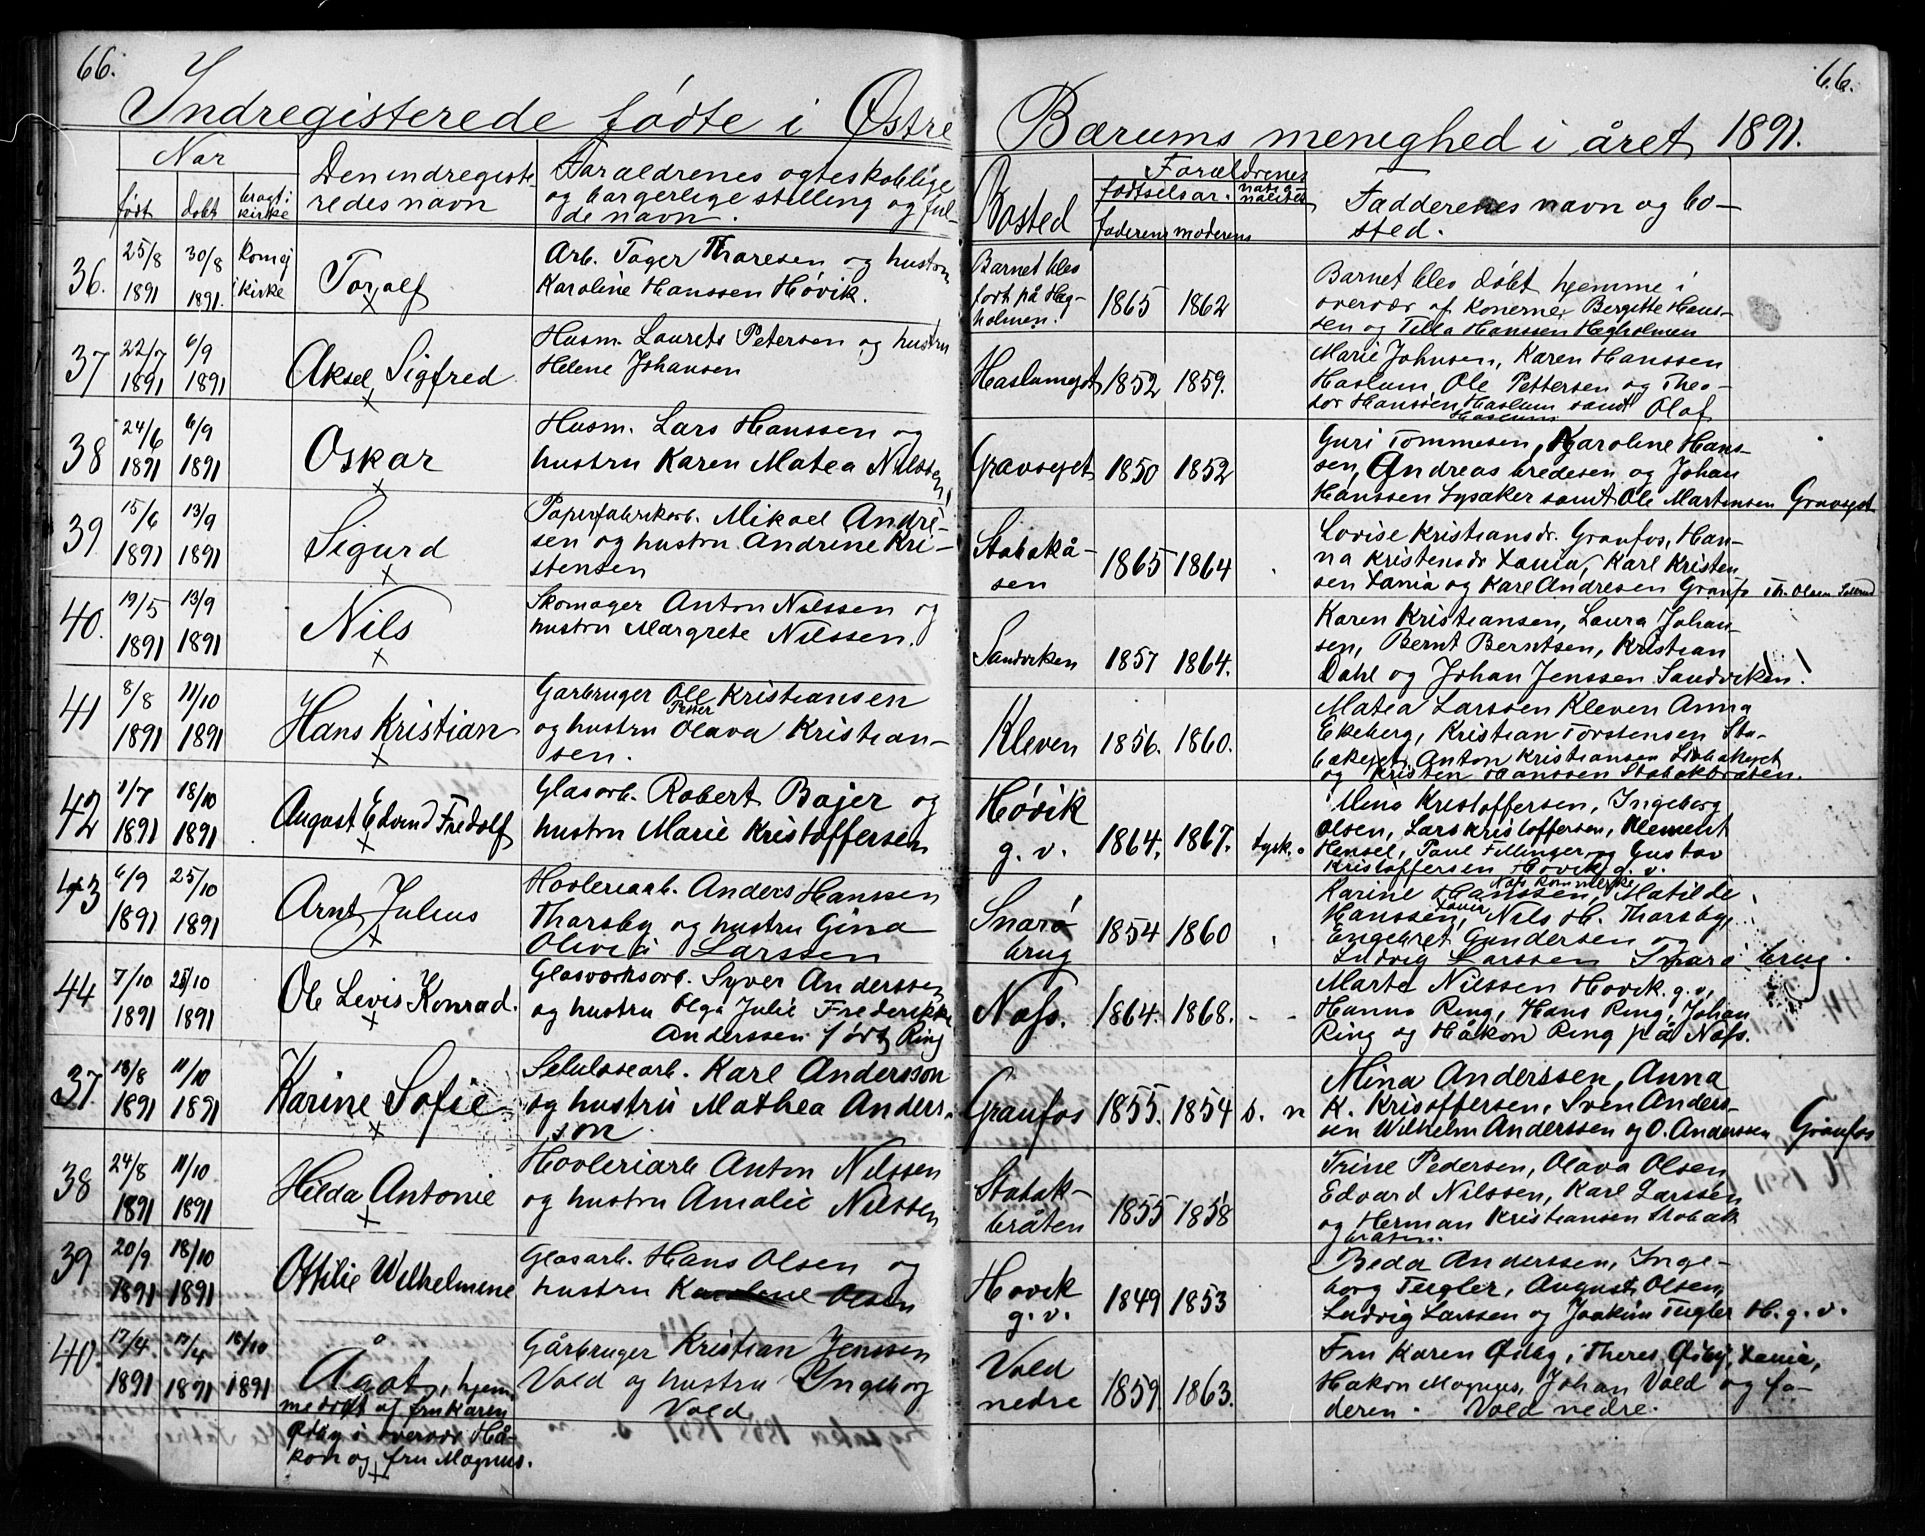 66.
66.
Indregisterede fødte i Østre Bærums menighed i året 1891.
Når
født
døbt
bragt i
kirke
Den indregiste-
redes navn
Forældrenes ægteskablige
og borgerlige stilling og ful-
de navn.
Bosted
Forældrenes
fødselsår.
faderens moderens
natio-
nalitet
Fadderenes navn og bo-
sted.
36.
25/8
1891
30/8
1891.
kom ej
i kirke
Toralf
Arb. Tager Tharesen og hustru
Karoline Hanssen Høvik.
Barnet blev
født på Heg-
holmen.
1865 1862
Barnet blev døbt hjemme i
overvær af Konerne, Bergitte Hans-
sen og Tilla Hanssen Hegholmen
37
22/7
1891
6/9
1891
Aksel Sigfred
Husm. Laurets Petersen og hustru
Helene Johansen
Haslumejet
1852 1859.
Marie Johnsen, Karen Hanssen
Haslum, Ole Pettersen og Theo-
dor Hanssen Haslum samt Olaf
Haslum
38
24/6
1891
6/9
1891
Oskar
Husm. Lars Hanssen og
hustru Karen Matea Nilssen
Gravsejet
1850 1852
Guri Tommesen, Karoline Hans-
sen, Andreas bredesen og Johan
Hanssen Lysaker samt Ole Martensen Gravsejet
39
15/6
1891
13/9
1891
Sigurd
Paperfabrikarb. Mikael Andre-
sen og hustru Andrine Kri-
stensen
Stabekå-
sen
1865 1864
Lovise Kristiansdr. Granfos, Han-
na Kristensdr Xania, Karl Kristen
sen Xania og Karl Andresen Granfos Th. Olsen
40.
19/5
1891
13/9
1891
Nils
Skomager Anton Nilssen og
hustru Margrete Nilssen.
Sandviken
1857 1864.
Karen Kristiansen, Laura Johan-
sen, Bernt Berntsen, Kristian
Dahl og Johan Jenssen Sandviken!
41
8/8
1891
11/10
1891
Hans Kristian
Garbruger Ole Kristiansen
og hustru Petter Olava Kristian-
sen.
Kleven
1856. 1860.
Matea Larssen Kleven Anna
Ekeberg, Kristian Torstensen Sta-
bækejet, Anton Kristiansen Stabækejet
og Kristen Hanssen Stabækbråten.
42
1/7
1891
18/10
1891
August Edvend Fredolf
Glasarb. Robert Bajer og
hustru Marie Kristoffersen
Høvik
g. v.
1864. 1867. tysk.
Mina Kristoffersen, Ingeborg
Olsen, Lars Kristoffersen, Klement
Hensel, Paul Fillinger og Gustav
Kristoffersen Høvik g. v.
43
6/9
1891
25/10
1891
Arnt Julius
Hovleriarb. Anders Hanssen
Tharsby og hustru Gina
Olivia Larssen
Snarø
brug
1854 1860
Karine Hanssen, Matilde
Hanssen, Nils H. Tharsby,
Engebret Gundersen og
Ludvig Larssen Snarø brug.
44
7/10
1891
25/10
1891
Ole Levis Konrad.
Glasværksarb. Syver Anderssen
og hustru Olga Julie Frederikke
Anderssen født Ring
Næss.
1864. 1868. - -
Marte Nilssen Høvik. g.v.
Hanna Ring, Hans Ring, Johan
Ring og Håkon Ring på Næss.
37
18/8
1891
11/10
1891
Karine Sofie
Selulosearb. Karl Andersson
og hustru Mathea Anders-
son
Granfos
1855. 1854 s. n
Mina Anderssen, Anna
K. Kristoffersen, Sven Anders-
sen Wilhelm Anderssen og O. Anderssen Granfos
38
24/8
1891
11/10
1891
Hilda Antonie
Hovleriarb Anton Nilssen
og hustru Amalie Nilssen
Stabæk-
bråten
1855 1858
Trine Pedersen, Olava Olsen
Edvard Nilssen, Karl Larssen
og Herman Kristiansen Stabæk
bråten.
39
20/9
1891
18/10
1891
Ottilie Wilhelmine
Glasarb. Hans Olsen og
hustru Karoline Olsen
Høvik
g. v.
1849 1853
Beda Anderssen, Inge-
borg Teigler, August Olsen
Ludvig Larssen og Joakim Teigler H. g. v.
40.
17/4.
1891
17/4
1891
18/10
1891
Ågot, hjem
medøbt af fru Karen
Ødby i overvær Hå-
kon og fru Magnus.
Gårbruger Kristian Jenssen
Vold og hustru Ingeborg
Vold
Vold
nedre
1859 1863.
Fru Karen Ødby, Theres Ødby, Xania,
Hakon Magnus, Johan Vold og fa-
deren. Vold nedre.